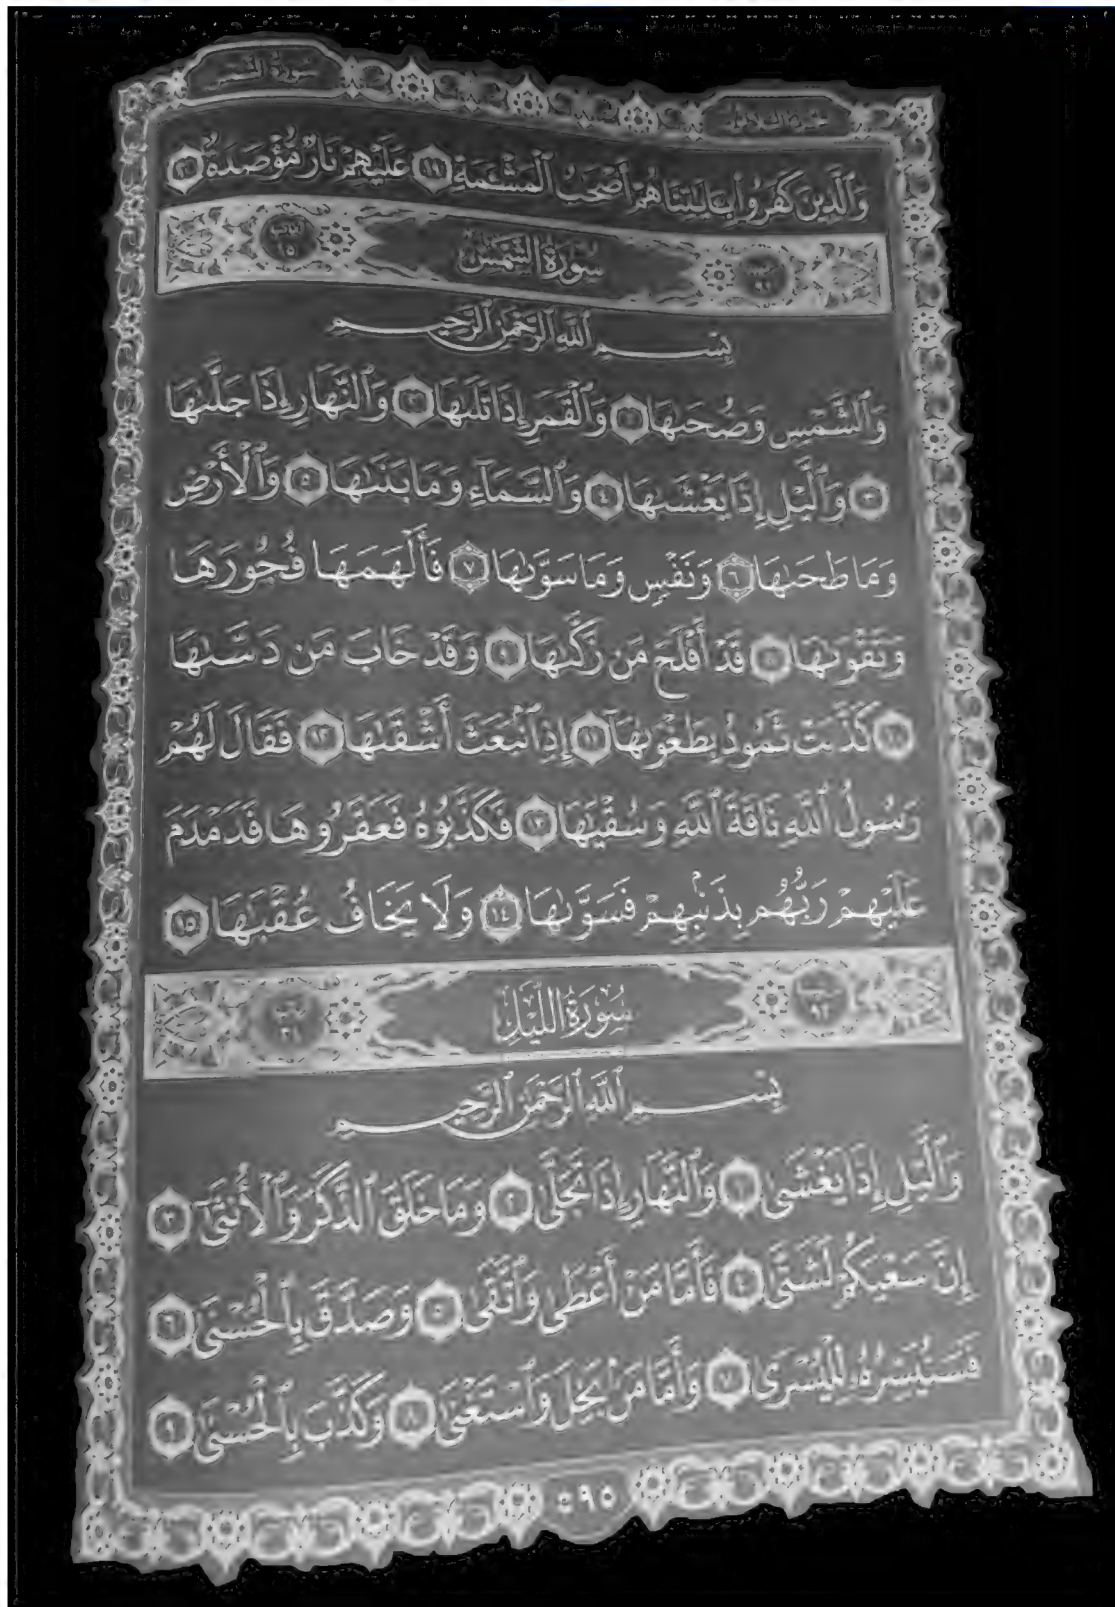 سورة الشمس
الجزء الثلاثون
وَٱلَّذِينَ كَفَرُوا۟ بِـَٔايَـٰتِنَا هُمْ أَصْحَـٰبُ ٱلْمَشْـَٔمَةِ ١٩ عَلَيْهِمْ نَارٌ مُّؤْصَدَةٌۢ ٢٠
سُورَةُ الشَّمْسِ
بِسْمِ ٱللَّهِ ٱلرَّحْمَـٰنِ ٱلرَّحِيمِ
وَٱلشَّمْسِ وَضُحَىٰهَا ١ وَٱلْقَمَرِ إِذَا تَلَىٰهَا ٢ وَٱلنَّهَارِ إِذَا جَلَّىٰهَا
٣ وَٱلَّيْلِ إِذَا يَغْشَىٰهَا ٤ وَٱلسَّمَآءِ وَمَا بَنَىٰهَا ٥ وَٱلْأَرْضِ
وَمَا طَحَىٰهَا ٦ وَنَفْسٍ وَمَا سَوَّىٰهَا ٧ فَأَلْهَمَهَا فُجُورَهَا
وَتَقْوَىٰهَا ٨ قَدْ أَفْلَحَ مَن زَكَّىٰهَا ٩ وَقَدْ خَابَ مَن دَسَّىٰهَا
١٠ كَذَّبَتْ ثَمُودُ بِطَغْوَىٰهَآ ١١ إِذِ ٱنۢبَعَثَ أَشْقَىٰهَا ١٢ فَقَالَ لَهُمْ
رَسُولُ ٱللَّهِ نَاقَةَ ٱللَّهِ وَسُقْيَـٰهَا ١٣ فَكَذَّبُوهُ فَعَقَرُوهَا فَدَمْدَمَ
عَلَيْهِمْ رَبُّهُم بِذَنۢبِهِمْ فَسَوَّىٰهَا ١٤ وَلَا يَخَافُ عُقْبَـٰهَا ١٥
سُورَةُ اللَّيْلِ
بِسْمِ ٱللَّهِ ٱلرَّحْمَـٰنِ ٱلرَّحِيمِ
وَٱلَّيْلِ إِذَا يَغْشَىٰ ١ وَٱلنَّهَارِ إِذَا تَجَلَّىٰ ٢ وَمَا خَلَقَ ٱلذَّكَرَ وَٱلْأُنثَىٰٓ ٣
إِنَّ سَعْيَكُمْ لَشَتَّىٰ ٤ فَأَمَّا مَنْ أَعْطَىٰ وَٱتَّقَىٰ ٥ وَصَدَّقَ بِٱلْحُسْنَىٰ ٦
فَسَنُيَسِّرُهُۥ لِلْيُسْرَىٰ ٧ وَأَمَّا مَنۢ بَخِلَ وَٱسْتَغْنَىٰ ٨ وَكَذَّبَ بِٱلْحُسْنَىٰ ٩
٥٩٥